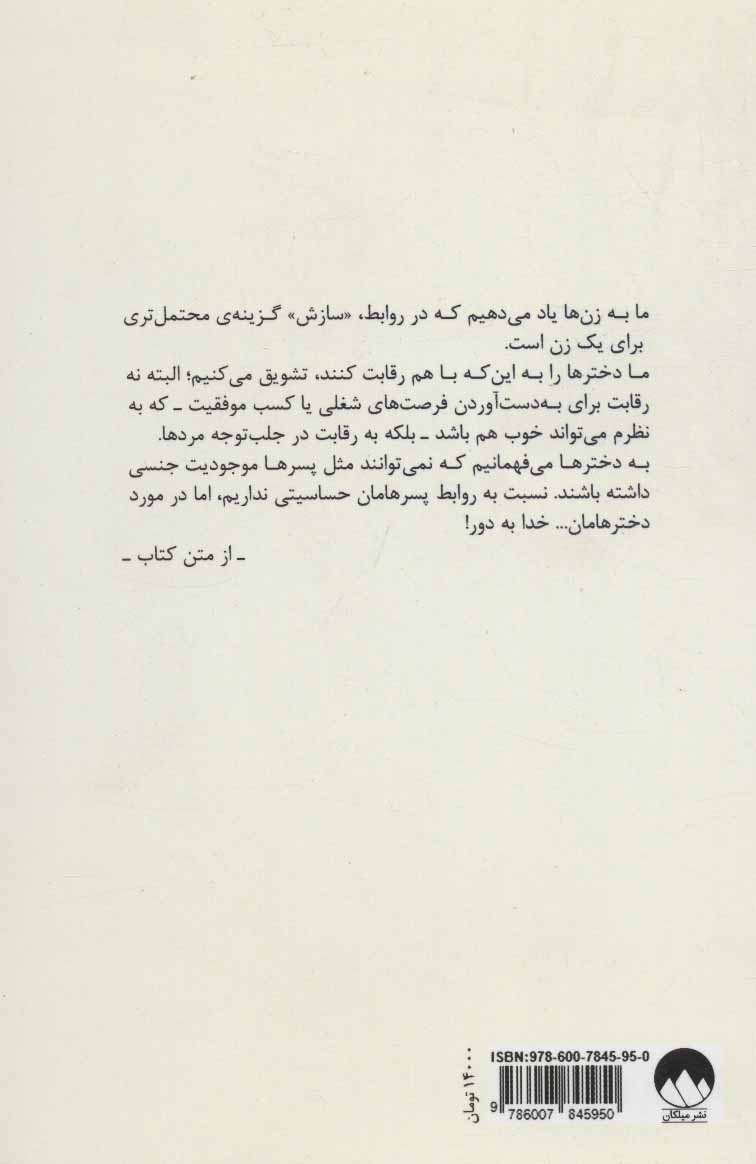 ما به زن‌ها یاد می‌دهیم که در روابط، «سازش» گزینه‌ی محتمل‌تری
برای یک زن است.
ما دخترها را به این‌که با هم رقابت کنند، تشویق می‌کنیم؛ البته نه
رقابت برای به‌دست‌آوردن فرصت‌های شغلی یا کسب موفقیت ـ که به
نظرم می‌تواند خوب هم باشد ـ بلکه به رقابت در جلب‌توجه مردها.
به دخترها می‌فهمانیم که نمی‌توانند مثل پسرها موجودیت جنسی
داشته باشند. نسبت به روابط پسرهامان حساسیتی نداریم، اما در مورد
دخترهامان... خدا به دور!
ـ از متن کتاب ـ
۱۴۰۰۰ تومان
ISBN:978-600-7845-95-0
9 786007 845950
نشر میلکان